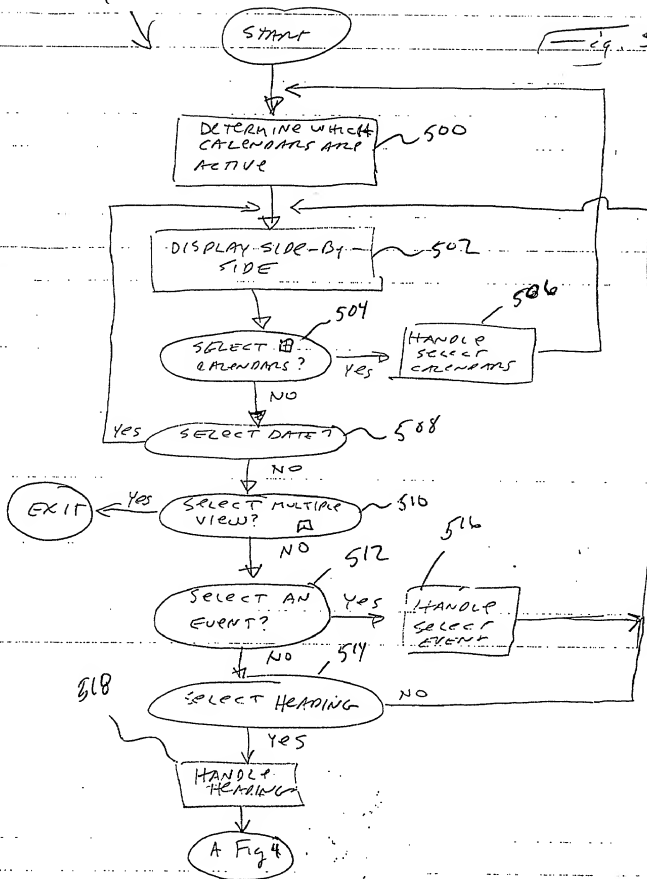 START
Fig. 5
DETERMINE WHICH
CALENDARS ARE
ACTIVE
500
DISPLAY SIDE-BY-
SIDE
502
504
SELECT
CALENDARS?
Yes
506
HANDLE
SELECT
CALENDARS
NO
Yes
SELECT DATE?
508
NO
EXIT
Yes
SELECT MULTIPLE
VIEW?
510
NO
512
516
SELECT AN
EVENT?
Yes
HANDLE
SELECT
EVENT
NO
514
SELECT HEADING
NO
518
Yes
HANDLE
HEADING
A Fig 4